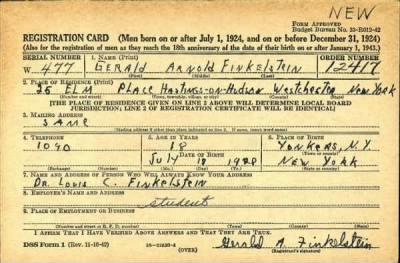 NEW
FORM APPROVED
Budget Bureau No. 33-R012-42
REGISTRATION CARD (Men born on or after July 1, 1924, and on or before December 31, 1924)
(Also for the registration of men as they reach the 18th anniversary of the date of their birth on or after January 1, 1943.)
SERIAL NUMBER 1. NAME (Print) ORDER NUMBER
W 477 GERALD Arnold FINKELSTEIN 12417
(First) (Middle) (Last)
2. PLACE OF RESIDENCE (Print)
25 ELM PLACE Hastings-on-Hudson Westchester New York
(Number and street) (Town, township, village, or city) (County) (State)
[THE PLACE OF RESIDENCE GIVEN ON LINE 2 ABOVE WILL DETERMINE LOCAL BOARD
JURISDICTION; LINE 2 OF REGISTRATION CERTIFICATE WILL BE IDENTICAL]
3. MAILING ADDRESS
SAME
[Mailing address if other than place indicated on line 2. If same, insert word same]
4. TELEPHONE 5. AGE IN YEARS 6. PLACE OF BIRTH
1090 18 YONKERS, N.Y.
DATE OF BIRTH (Town or county)
July 18 NEW YORK
(Exchange) (Number) (Mo.) (Day) (Yr.) (State or country)
7. NAME AND ADDRESS OF PERSON WHO WILL ALWAYS KNOW YOUR ADDRESS
DR. LOUIS C. FINKELSTEIN
8. EMPLOYER'S NAME AND ADDRESS
student
9. PLACE OF EMPLOYMENT OR BUSINESS
(Number and street or R. F. D. number) (Town) (County) (State)
I AFFIRM THAT I HAVE VERIFIED ABOVE ANSWERS AND THAT THEY ARE TRUE.
DSS Form 1 (Rev. 11-16-42) (OVER) Gerald A. Finkelstein
(Registrant's signature)